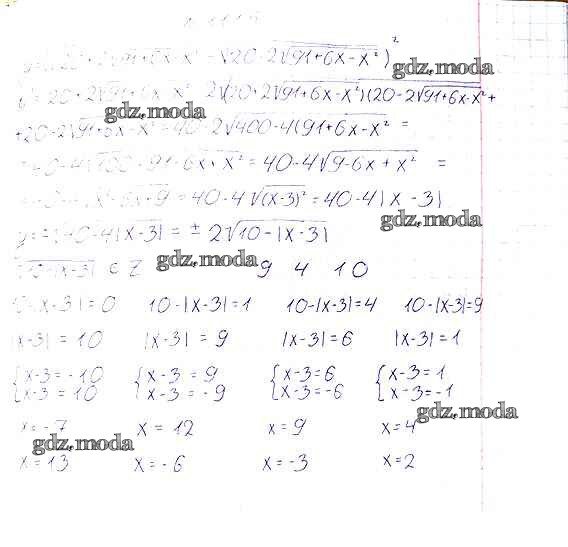 20+2√91+6x-x² - √20-2√91+6x-x²)²
gdz.moda
y²=20+2√91+6x-x² 2√(20+2√91+6x-x²)(20-2√91+6x-x²+
gdz.moda
+20-2√91+6x-x²=40-2√400-4(91+6x-x² =
40-4√100-91-6x+x² = 40-4√9-6x+x² =
x²-6x+9 = 40-4√(x-3)² = 40-4|x-3|
gdz.moda
y= 40-4|x-3| = ± 2√10-|x-3|
gdz.moda
|x-3| ∈ Z 9 4 10
|x-3|=0 10-|x-3|=1 10-|x-3|=4 10-|x-3|=9
|x-3| = 10 |x-3| = 9 |x-3|=6 |x-3|=1
{x-3=-10 {x-3=9 {x-3=6 {x-3=1
{x-3=10 {x-3=-9 {x-3=-6 {x-3=-1
gdz.moda
x=-7 x=12 x=9 x=4
gdz.moda
x=13 x=-6 x=-3 x=2